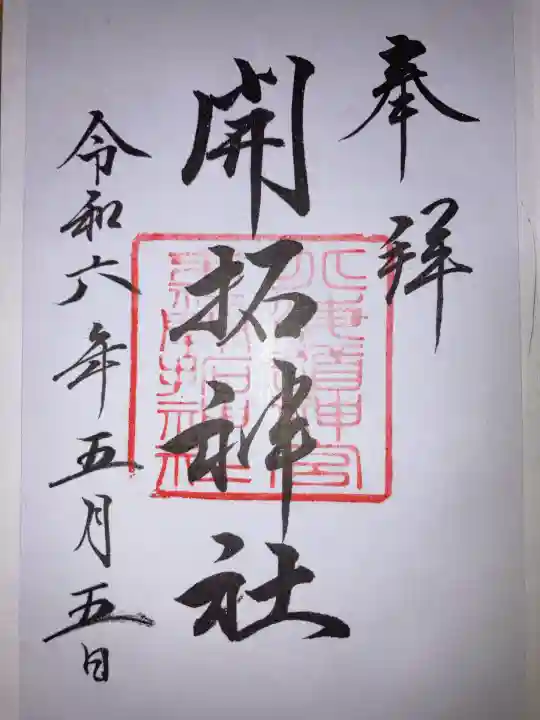 奉拝
開拓神社
令和六年五月五日
北海道神宮